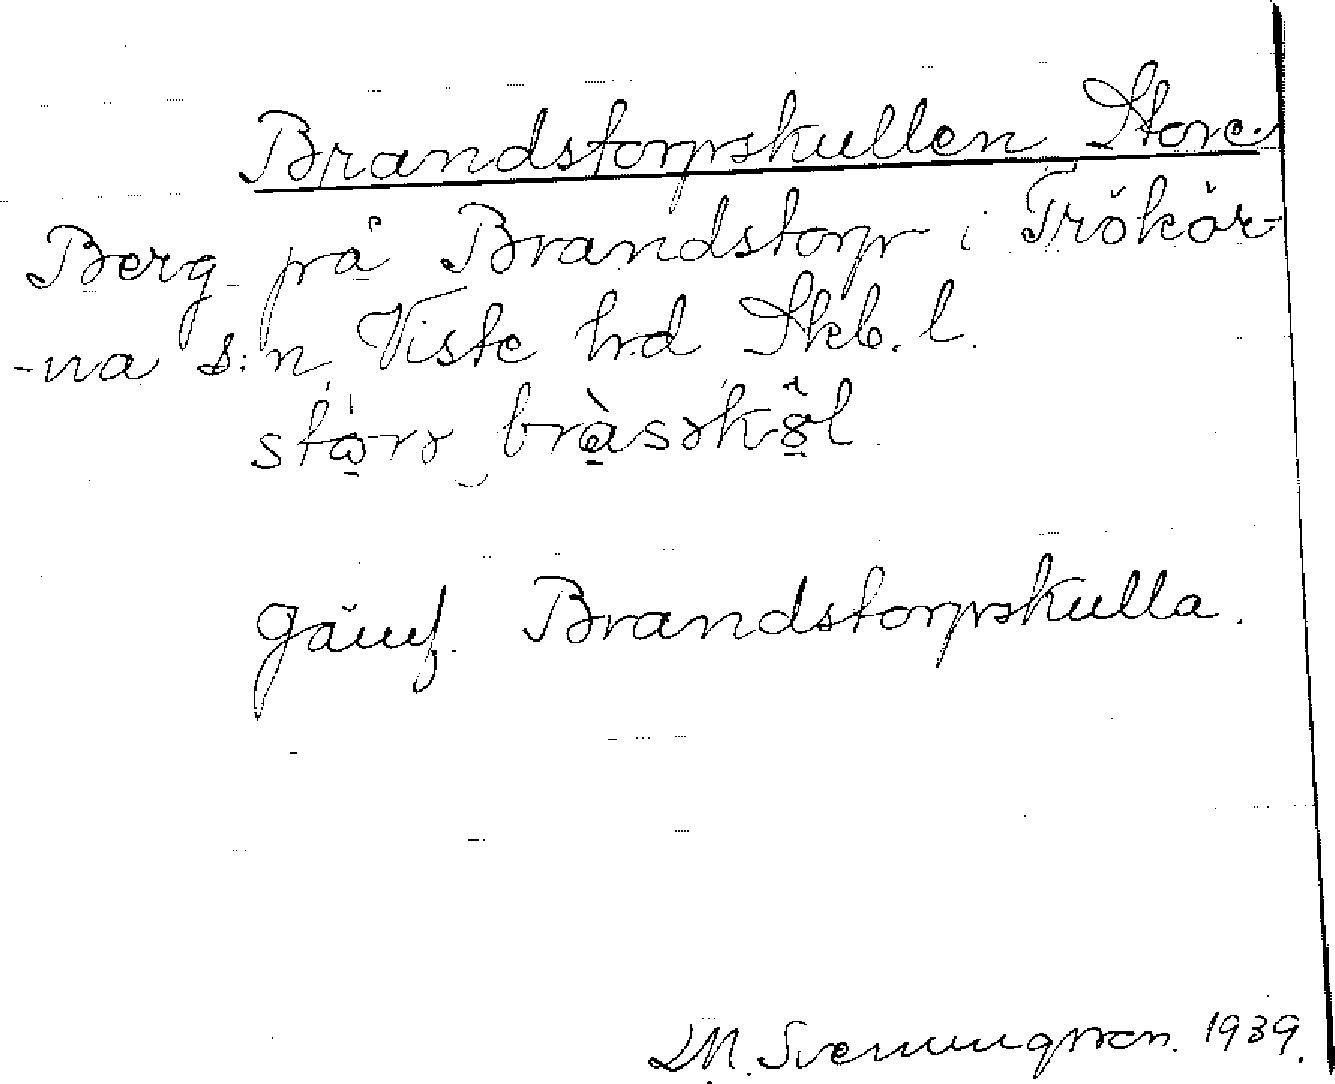 Brandstorpskullen Store.
Berg på Brandstorp i Trökör-
-na s:n Viste hd Skb. l.
Jämf. Brandstorpskulla.
Svenungsson. 1939.